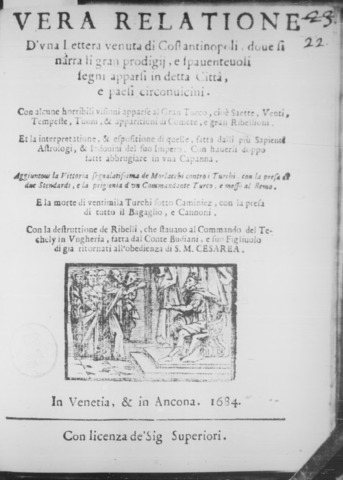 VERA RELATIONE
D'vna Lettera venuta di Costantinopoli, doue si
narra li gran prodigij, e spauenteuoli
segni apparsi in detta Città,
e paesi circonuicini.
Con alcune horribili visioni apparse al Gran Turco, cioè Saette, Venti,
Tempeste, Tuoni, & apparitioni di Comete, e gran Ribellioni.
Et la interpretatione, & espositione di quelle, fatta dalli più Sapienti
Astrologi, & Indouini del suo Impero. Con hauerli doppo
fatt abbrugiare in vna Capanna.
Aggiuntoui la Vittoria segnalatissima de Morlacchi contro i Turchi, con la presa di
due Stendardi, e la preggonia d'vn Commandante Turco, e messi al Remo.
E la morte di ventimila Turchi sotto Caminiez, con la presa
di tutto il Bagaglio, e Cannoni.
Con la destruttione de Ribelli, che stauano al Commando del Te-
chely in Vngheria, fatta dal Conte Budiani, e suo Figliuolo
di già ritornati all'obedienza di S. M. CESAREA.
In Venetia, & in Ancona. 1684.
Con licenza de'Sig Superiori.
23.
22.